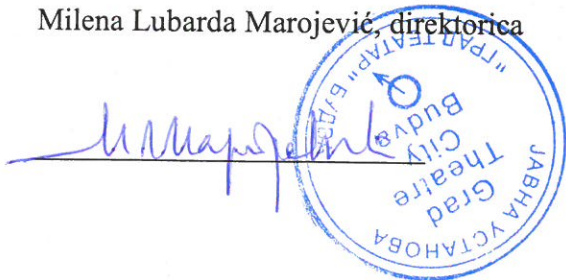 Milena Lubarda Marojević, direktorica
М Маројевић
ЈАВНА УСТАНОВА
"ГРАД ТЕАТАР" БУДВА
Grad
Theatre
City
Budva